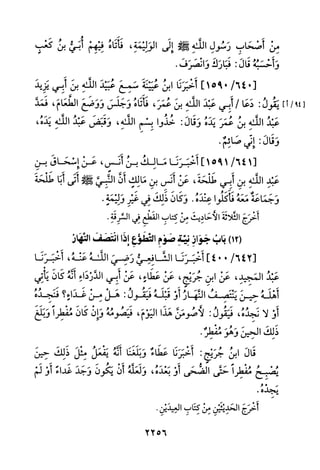 مِنْ أَصْحَابِ رَسُولِ اللَّهِ ﷺ إِلَى الوَلِيْمَةِ، فَأَتَاهُ فِيْهِمْ أُبَيُّ بنُ كَعْبٍ
وَأَحْسَبُهُ قَالَ: فَبَارَكَ وَانْصَرَفَ.
[١٥٩٠/٦٤٠] أَخْبَرَنَا ابنُ عُيَيْنَةَ سَمِعَ عُبَيْدَ اللَّهِ بنَ أَبِي يَزِيدَ
[٩٤/أ] يَقُولُ: دَعَا/ أَبِي عَبْدَ اللَّهِ بنَ عُمَرَ، فَأَتَاهُ وَجَلَسَ وَوَضَعَ الطَّعَامَ، فَمَدَّ
عَبْدُ اللَّهِ بنُ عُمَرَ يَدَهُ وَقَالَ: خُذُوا بِسْمِ اللَّهِ، وَقَبَضَ عَبْدُ اللَّهِ يَدَهُ،
وَقَالَ: إِنِّي صَائِمٌ.
[١٥٩١/٦٤١] أَخْبَرَنَا مَالِكُ بنُ أَنَسٍ، عَنْ إِسْحَاقَ بنِ
عَبْدِ اللَّهِ بنِ أَبِي طَلْحَةَ، عَنْ أَنَسِ بنِ مَالِكٍ أَنَّ النَّبِيَّ ﷺ أَتَى أَبَا طَلْحَةَ
وَجَمَاعَةٌ مَعَهُ فَأَكَلُوا عِنْدَهُ. وَكَانَ ذَلِكَ فِي غَيْرِ وَلِيْمَةٍ.
أَخْرَجَ الثَّلَاثَةَ الأَحَادِيثَ مِنْ كِتَابِ القَطْعِ فِي السَّرِقَةِ.
(١٢) بَابُ جَوَازِ نِيَّةِ صَوْمِ التَّطَوُّعِ إِذَا انْتَصَفَ النَّهَارُ
[٤٠٠/٦٤٢] أَخْبَرَنَا الشَّافِعِيُّ رَضِيَ اللَّهُ عَنْهُ، أَخْبَرَنَا
عَبْدُ المَجِيدِ، عَنْ ابنِ جُرَيْجٍ، عَنْ عَطَاءٍ، عَنْ أَبِي الدَّرْدَاءِ أَنَّهُ كَانَ يَأْتِي
أَهْلَهُ حِينَ يَنْتَصِفُ النَّهَارُ أَوْ قَبْلَهُ فَيَقُولُ: هَلْ مِنْ غَدَاءٍ؟ فَنَجِدُهُ
أَوْ لَا نَجِدُهُ، فَيَقُولُ: لأَصُومَنَّ هَذَا اليَوْمَ، فَيَصُومُهُ وَإِنْ كَانَ مُفْطِراً وَبَلَغَ
ذَلِكَ الحِينَ وَهُوَ مُفْطِرٌ.
قَالَ ابنُ جُرَيْجٍ: أَخْبَرَنَا عَطَاءٌ وَبَلَغَنَا أَنَّهُ يَفْعَلُ مِثْلَ ذَلِكَ حِينَ
يُصْبِحُ مُفْطِراً حَتَّى الضُّحَى أَوْ بَعْدَهُ، وَلَعَلَّهُ أَنْ يَكُونَ وَجَدَ غَدَاءً أَوْ لَمْ
يَجِدْهُ.
أَخْرَجَ الحَدِيْثَيْنِ مِنْ كِتَابِ العِيدَيْنِ.
٢٢٥٦